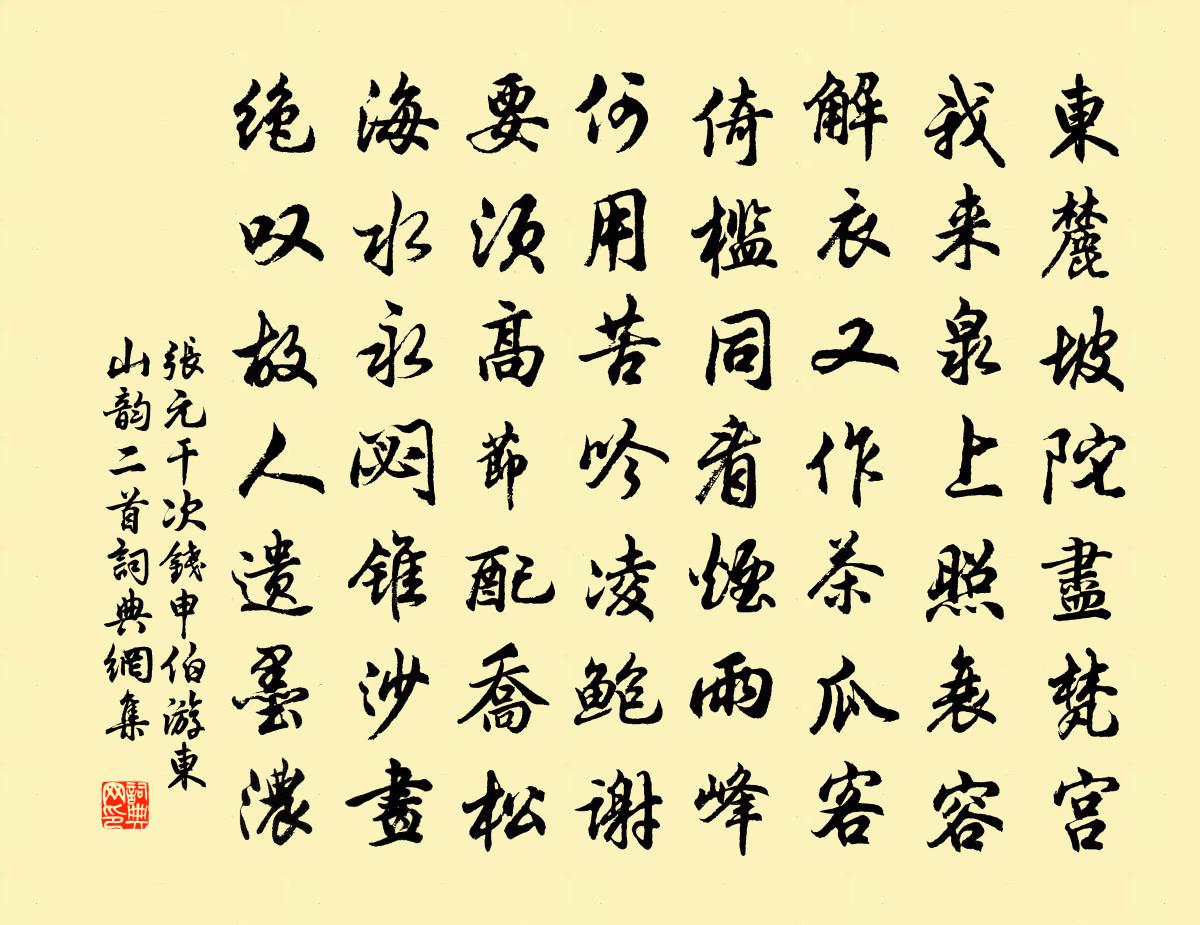 東麓坡陀盡梵宮
我来泉上照衰容
解衣又作茶瓜客
倚檻同看煙雨峰
何用苦吟凌鲍谢
要须高節配喬松
海水永閟錐沙畫
绝叹故人遗墨濃
張元干次錢申伯游東
山韵二首詞典網集
詞典网印